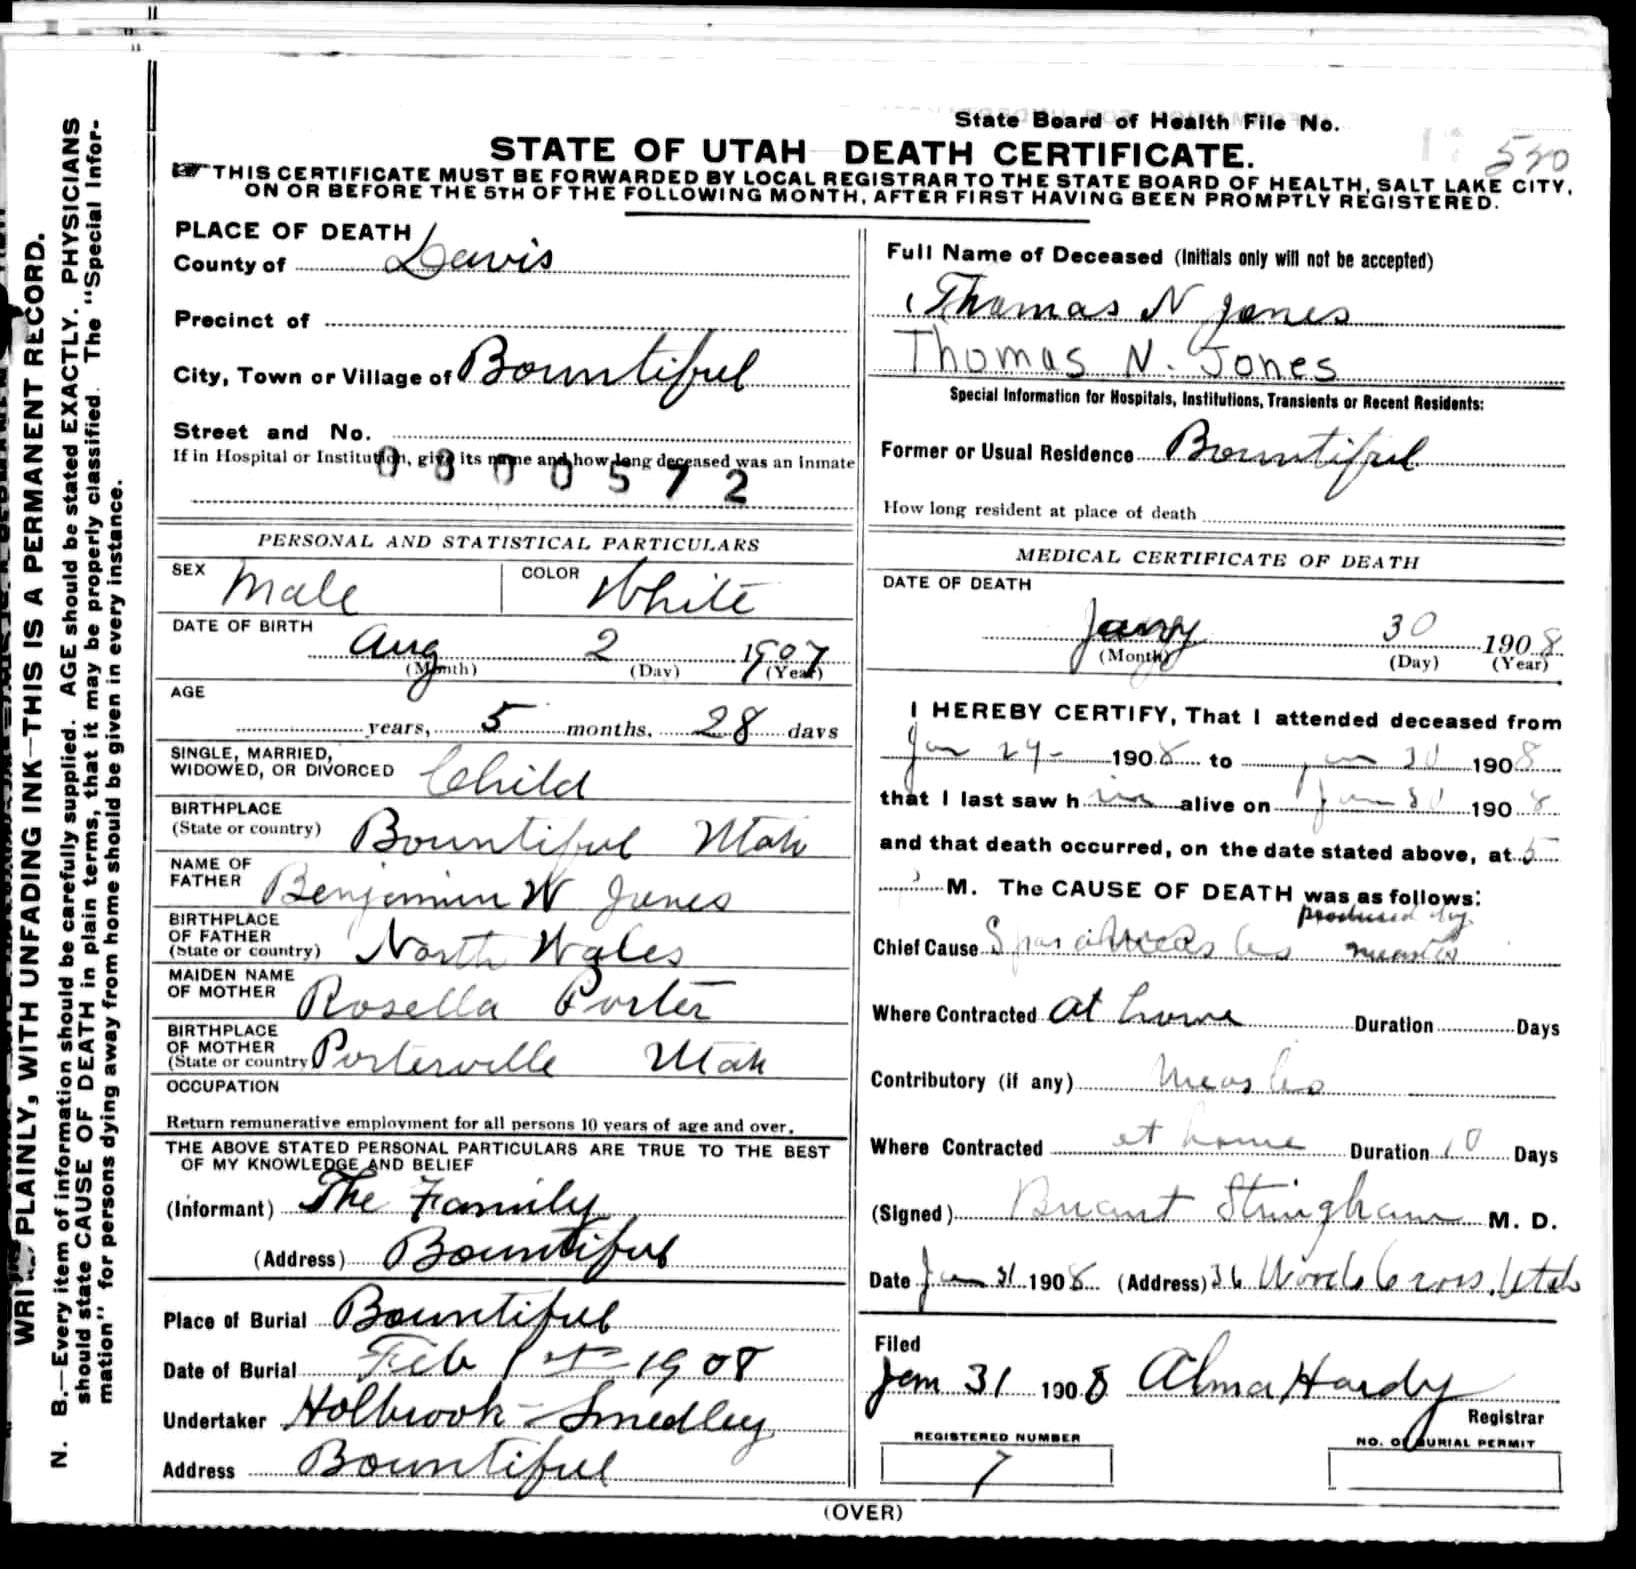 WRITE PLAINLY, WITH UNFADING INK—THIS IS A PERMANENT RECORD.
N. B.—Every item of information should be carefully supplied. AGE should be stated EXACTLY. PHYSICIANS
should state CAUSE OF DEATH in plain terms, that it may be properly classified. The "Special Infor-
mation" for persons dying away from home should be given in every instance.
State Board of Health File No.
530
STATE OF UTAH DEATH CERTIFICATE.
THIS CERTIFICATE MUST BE FORWARDED BY LOCAL REGISTRAR TO THE STATE BOARD OF HEALTH, SALT LAKE CITY,
ON OR BEFORE THE 5TH OF THE FOLLOWING MONTH, AFTER FIRST HAVING BEEN PROMPTLY REGISTERED.
PLACE OF DEATH
County of Davis
Precinct of
City, Town or Village of Bountiful
Street and No.
If in Hospital or Institution, give its name and how long deceased was an inmate
0800572
PERSONAL AND STATISTICAL PARTICULARS
SEX Male COLOR White
DATE OF BIRTH
Aug 2 1907
(Month) (Day) (Year)
AGE
years, 5 months, 28 days
SINGLE, MARRIED,
WIDOWED, OR DIVORCED Child
BIRTHPLACE
(State or country) Bountiful Utah
NAME OF
FATHER Benjamin W Jones
BIRTHPLACE
OF FATHER
(State or country) North Wales
MAIDEN NAME
OF MOTHER Rosella Porter
BIRTHPLACE
OF MOTHER
(State or country Porterville Utah
OCCUPATION
Return remunerative employment for all persons 10 years of age and over.
THE ABOVE STATED PERSONAL PARTICULARS ARE TRUE TO THE BEST
OF MY KNOWLEDGE AND BELIEF
(Informant) The Family
(Address) Bountiful
Place of Burial Bountiful
Date of Burial Feb 1st 1908
Undertaker Holbrook - Smedley
Address Bountiful
Full Name of Deceased (Initials only will not be accepted)
Thomas N Jones
Thomas N. Jones
Special Information for Hospitals, Institutions, Transients or Recent Residents:
Former or Usual Residence Bountiful
How long resident at place of death
MEDICAL CERTIFICATE OF DEATH
DATE OF DEATH
Jany 30 1908
(Month) (Day) (Year)
I HEREBY CERTIFY, That I attended deceased from
Jan 29 1908 to Jan 1908
that I last saw him alive on Jan 1908
and that death occurred, on the date stated above, at 5
M. The CAUSE OF DEATH was as follows:
produced by
Chief Cause measles
Where Contracted at home Duration Days
Contributory (if any) Measles
Where Contracted at home Duration 10 Days
(Signed) Briant Stringham M. D.
Date Jan 31 1908 (Address) Woods Cross, Utah
Filed
Jan 31 1908 Alma Hardy
Registrar
REGISTERED NUMBER
7
NO. OF BURIAL PERMIT
(OVER)